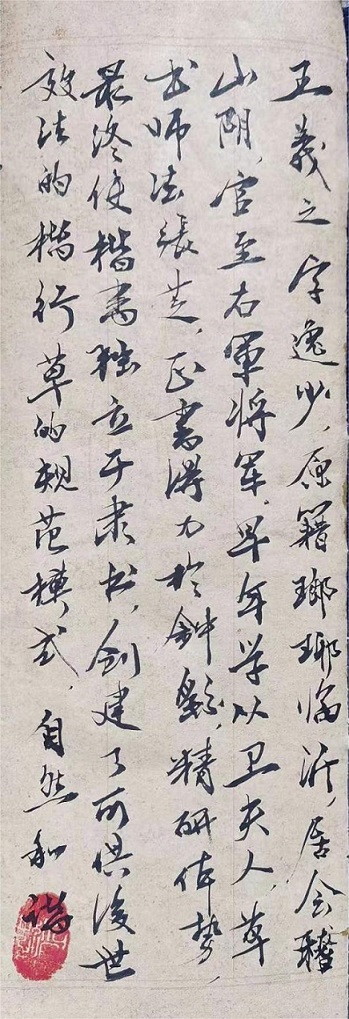 王羲之字逸少，原籍瑯琊临沂，居会稽
山阴，官至右軍将军，早年学从卫夫人，草
书师法张芝，正書得力於鈡繇，精研体势，
最终使楷書独立于隶书，创建了可供後世
效法的楷行草的规范模式，自然和谐